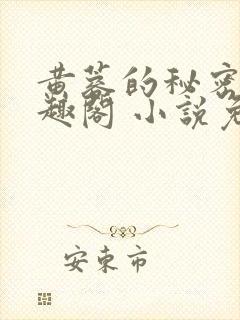 黄蓉的秘密
趣阁 小说免
安东市